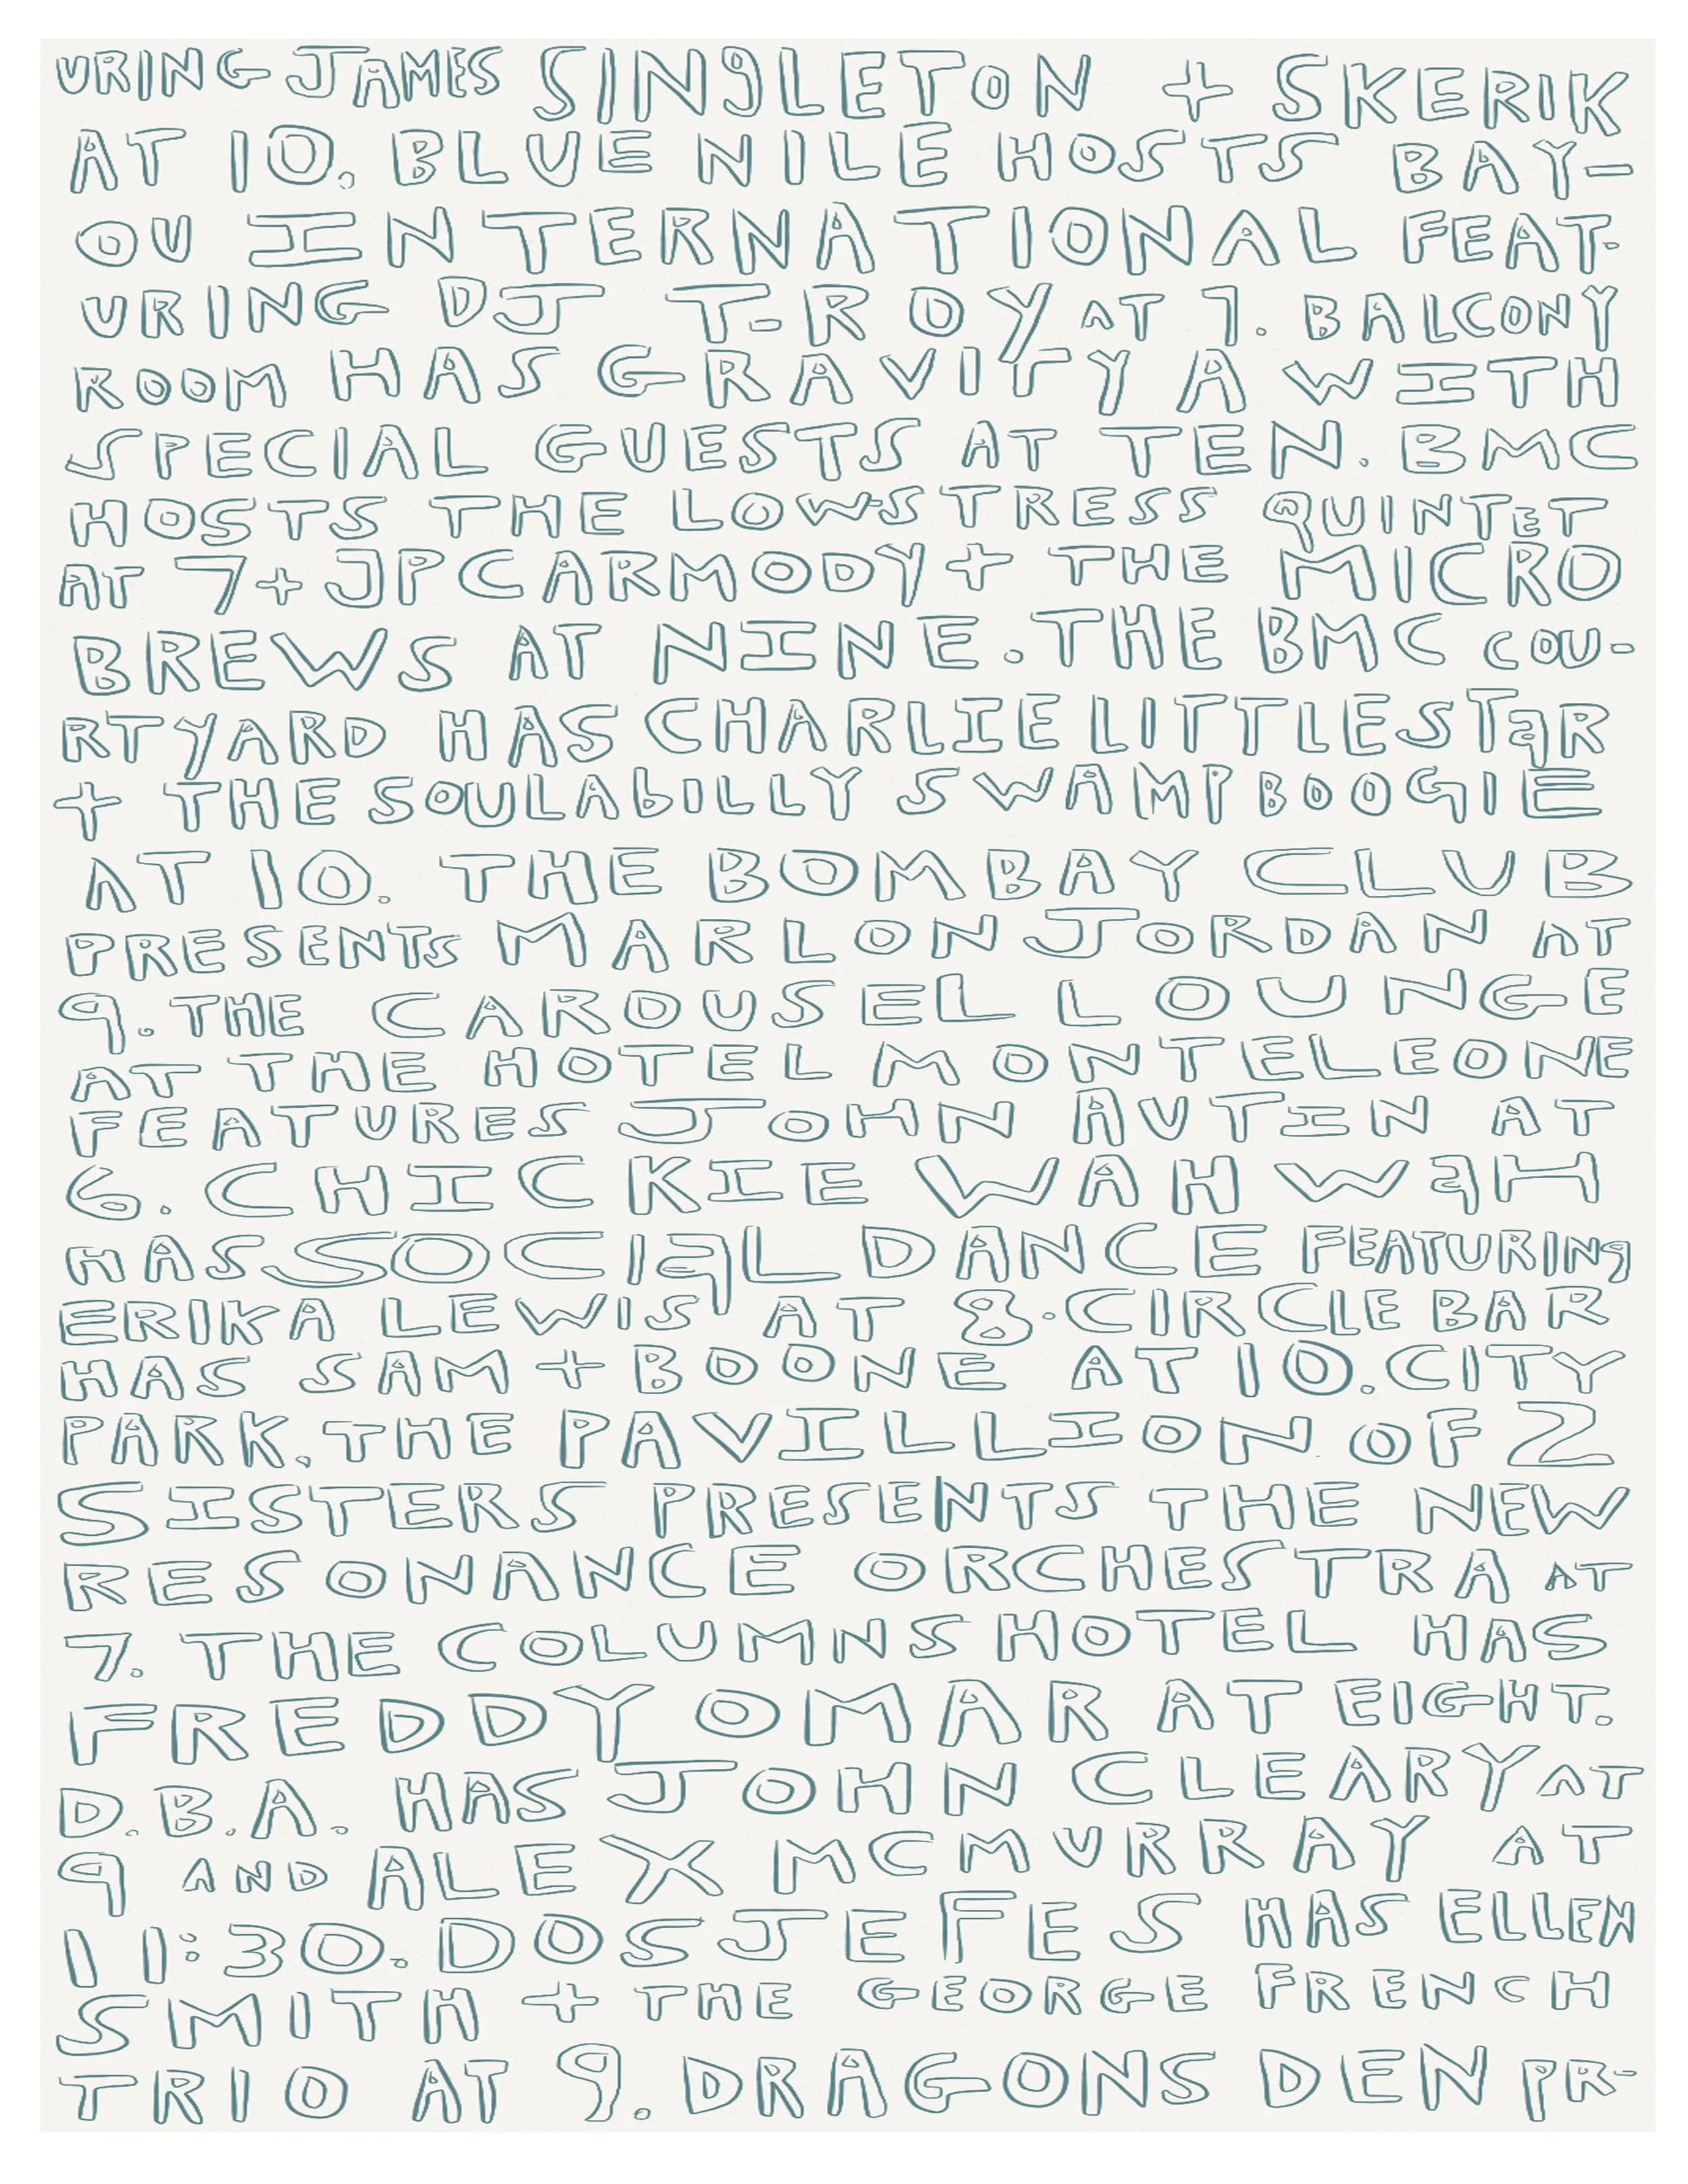 URING JAMES SINgLETON + SKERIK
AT 10. BLUE NILE HOSTS BAY-
OU INTERNATIONAL FEAT-
URING DJ T-ROY AT 7. BALCONY
ROOM HAS GRAVITY A WITH
SPECIAL GUESTS AT TEN. BMC
HOSTS THE LOW-STRESS QUINTET
AT 7 + JP CARMODY + THE MICRO
BREWS AT NINE. THE BMC COU-
RTYARD HAS CHARLIE LITTLE STaR
+ THE SOULAbILLY SWAMP BOOGIE
AT 10. THE BOMBAY CLUB
PRESENTS MARLON JORDAN AT
9. THE CAROUSEL LOUNGE
AT THE HOTEL MONTELEONE
FEATURES JOHN AUTIN AT
6. CHICKIE WAH WaH
HAS SOCIaL DANCE FEATURINg
ERIKA LEWIS AT 8. CIRCLE BAR
HAS SAM + BOONE AT 10. CITY
PARK. THE PAVILLION OF 2
SISTERS PRESENTS THE NEW
RESONANCE ORCHESTRA AT
7. THE COLUMNS HOTEL HAS
FREDDY OMAR AT EIGHT.
D.B.A. HAS JOHN CLEARY AT
9 AND ALEX MCMURRAY AT
11:30. DOS JEFES HAS ELLEN
SMITH + THE GEORGE FRENCH
TRIO AT 9. DRAGONS DEN PR-